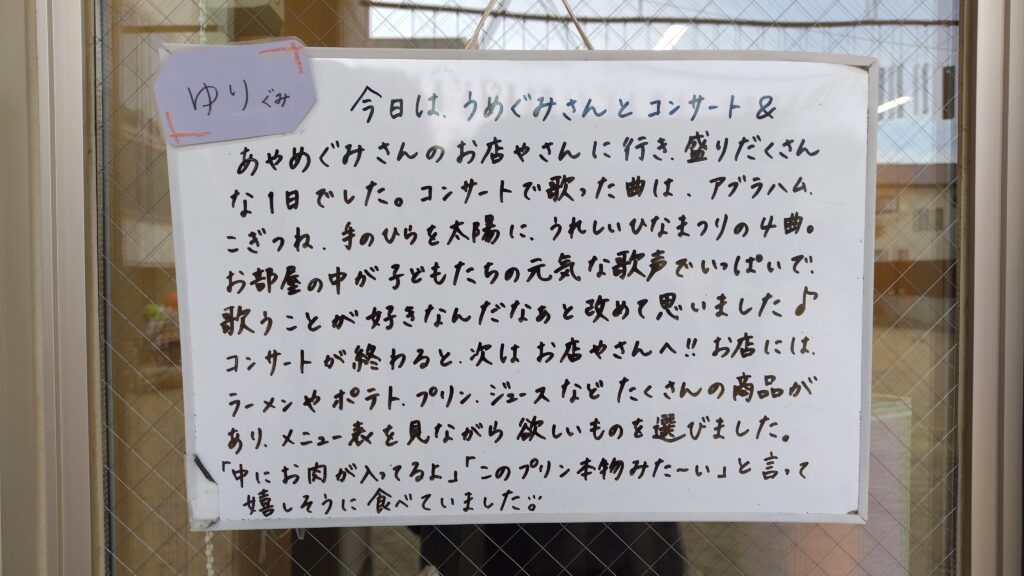 ゆりぐみ
今日は、うめぐみさんとコンサート&
あやめぐみさんのお店やさんに行き、盛りだくさん
な1日でした。コンサートで歌った曲は、アブラハム、
こぎつね、手のひらを太陽に、うれしいひなまつりの4曲。
お部屋の中が子どもたちの元気な歌声でいっぱいで、
歌うことが好きなんだなぁと改めて思いました♪
コンサートが終わると、次はお店やさんへ!!お店には、
ラーメンやポテト、プリン、ジュースなどたくさんの商品が
あり、メニュー表を見ながら欲しいものを選びました。
「中にお肉が入ってるよ」「このプリン本物みた〜い」と言って
嬉しそうに食べていました。